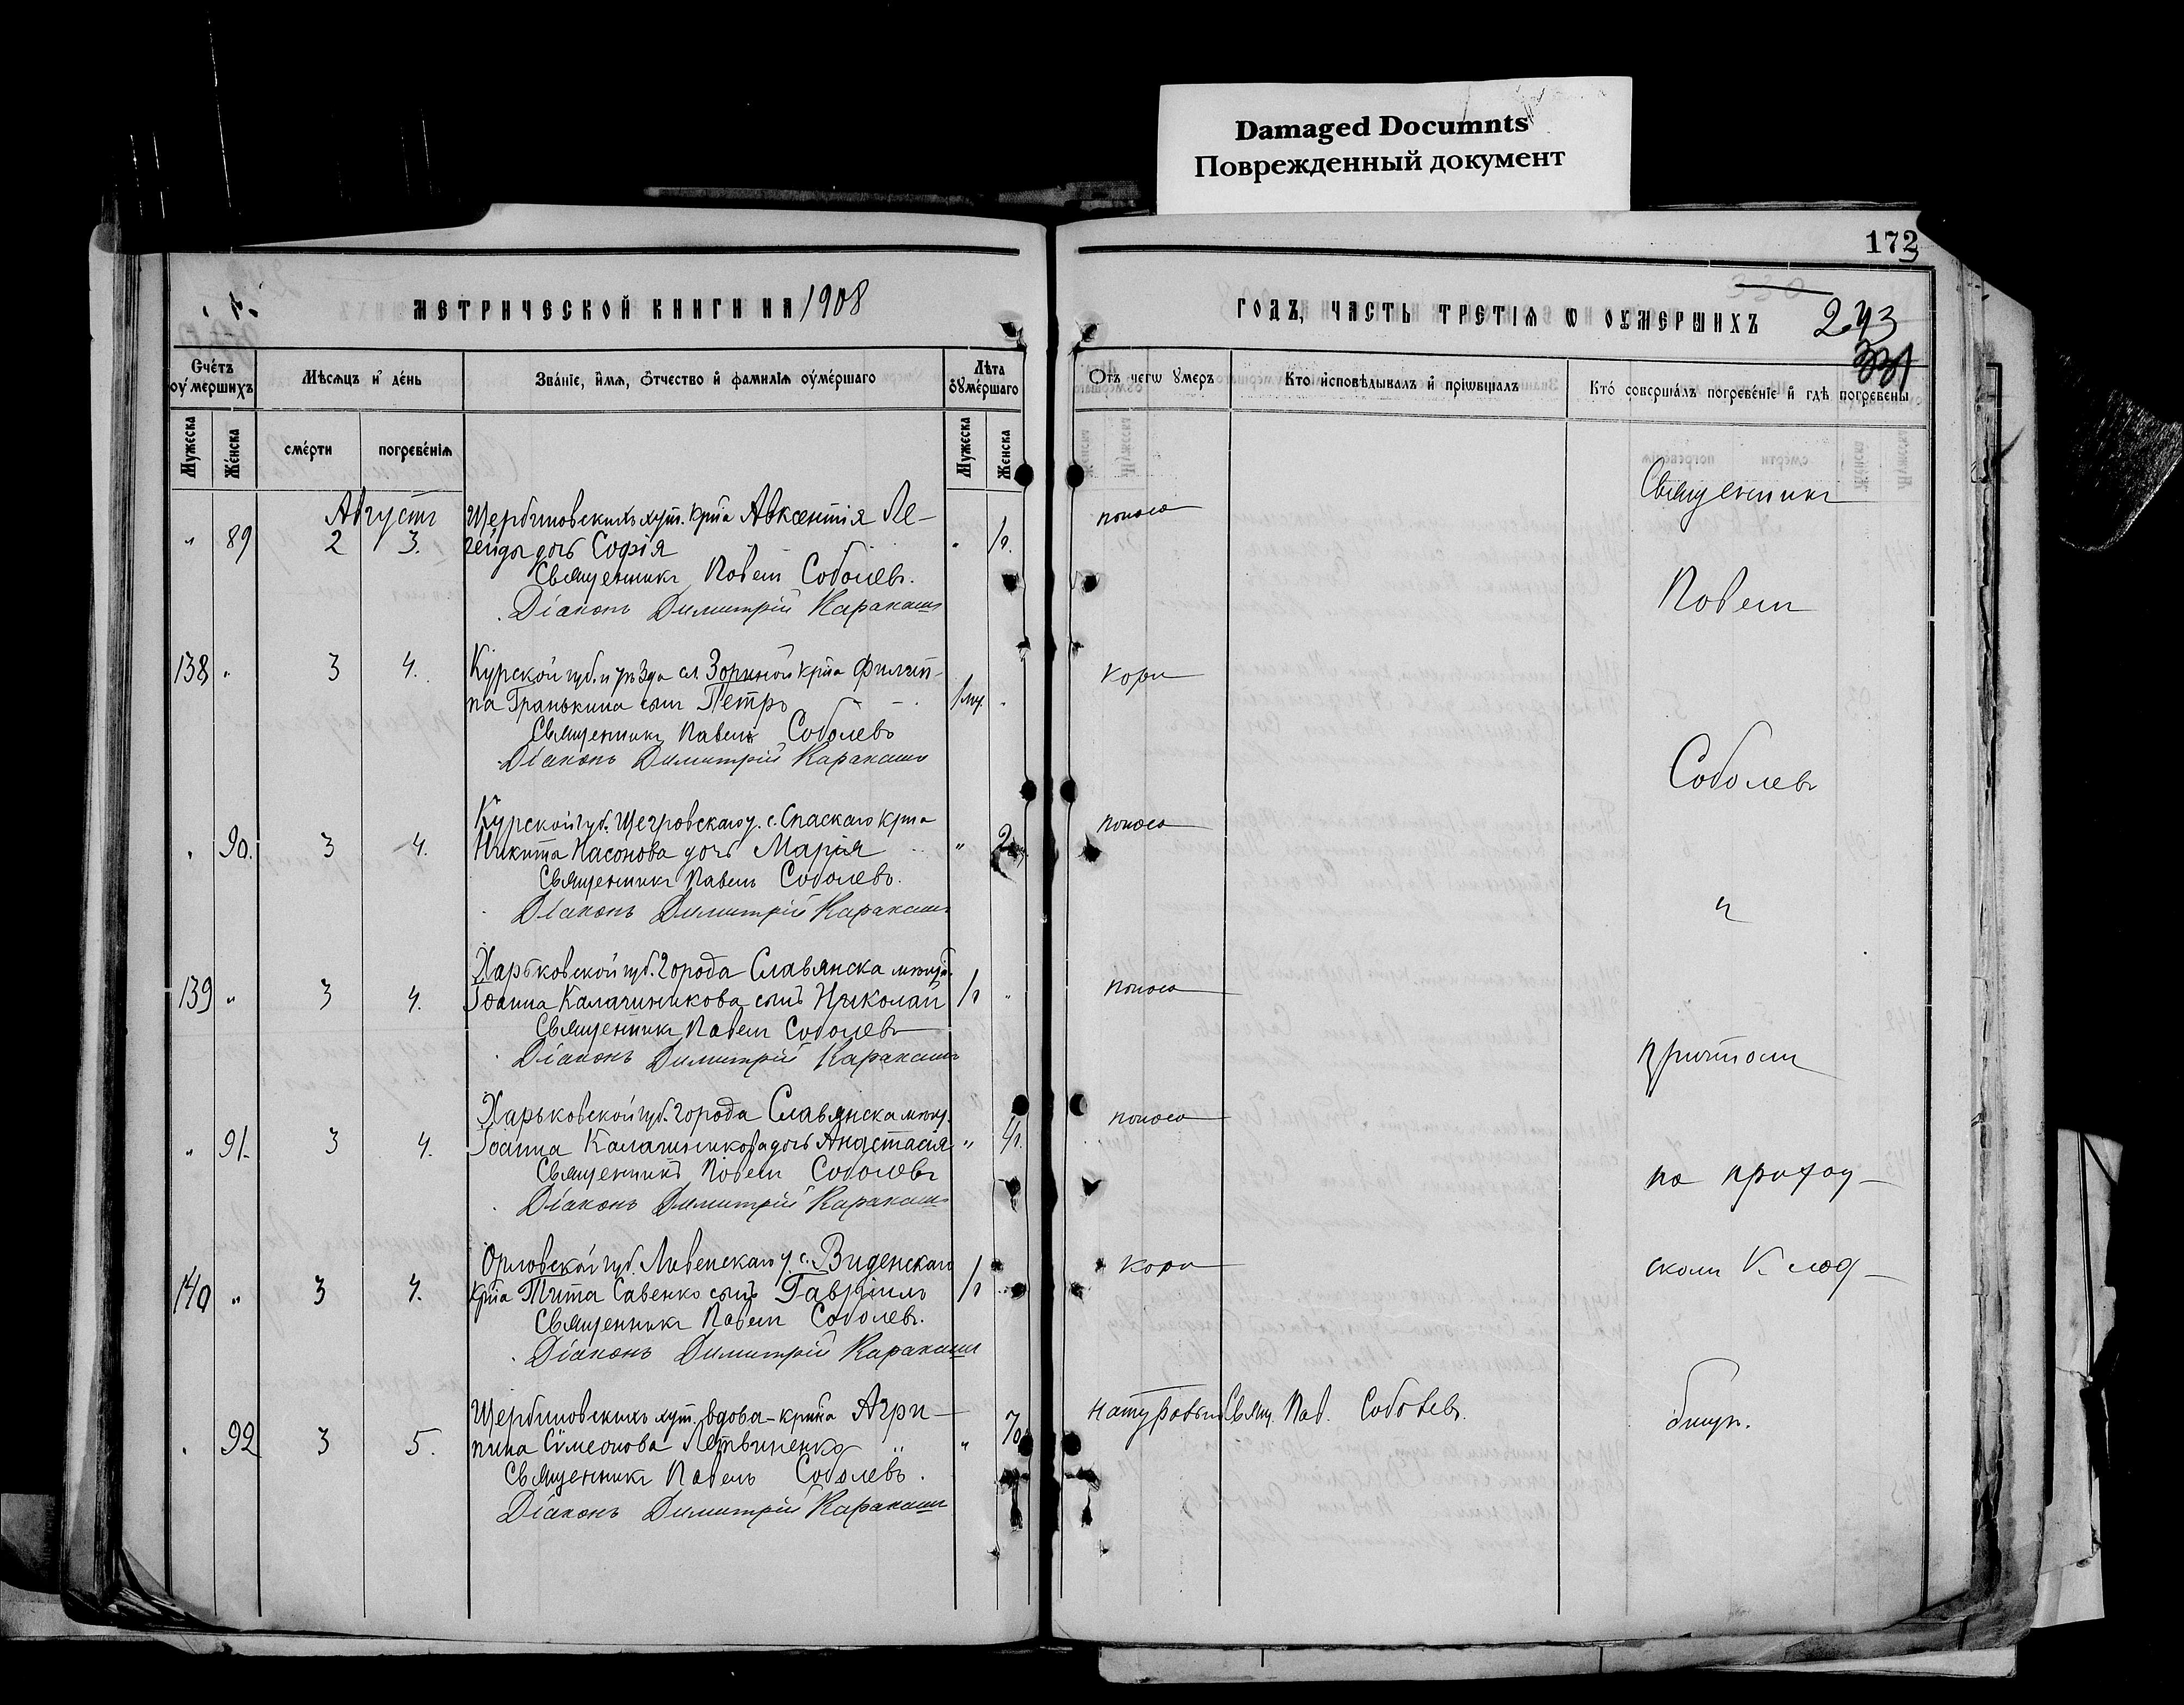 Damaged Documnts
Поврежденный документ
172
МЕТРИЧЕСКОЙ КНИГИ НА 1908
ГОДЪ, ЧАСТЬ ТРЕТІѦ Ѡ ОУМЕРШИХЪ
243
331
Счетъ оумершихъ
Мѣсяцъ и день
Званіе, имя, отчество и фамилія оумершаго
Лѣта оумершаго
Отъ чегѡ умеръ
Кто исповѣдывалъ и пріѡбщалъ
Кто совершалъ погребеніе и гдѣ погребены
Мужеска
Женска
смерти
погребенія
Мужеска
Женска
Августъ
" 89 2 3. Щербиновскихъ хут. кр-на Авксентія Ле-
гейды дочь Софія " 1г. поноса
Священникъ Павелъ Соболевъ.
Діаконъ Димитрій Каракашъ
138 " 3 4. Курской губ. и уѣзда сл. Зориной кр-на Филип-
па Гранькина сынъ Петръ " кори
Священникъ Павелъ Соболевъ
Діаконъ Димитрій Каракашъ
" 90. 3 4. Курской губ. Щегровскаго у. с. Спаскаго кр-на
Никита Насонова дочь Марія " 2 поноса
Священникъ Павелъ Соболевъ.
Діаконъ Димитрій Каракашъ
139 " 3 4. Харьковской губ. города Славянска мѣщ.
Іоанна Калачникова сынъ Николай 1г " поноса
Священникъ Павелъ Соболевъ
Діаконъ Димитрій Каракашъ
" 91. 3 4. Харьковской губ. города Славянска мѣщ.
Іоанна Калачникова дочь Анастасія " 4г. поноса
Священникъ Павелъ Соболевъ
Діаконъ Димитрій Каракашъ
140 " 3 4. Орловской губ. Ливенскаго у. с. Виденскаго
кр-на Тита Савенко сынъ Гавріилъ 1г " кори
Священникъ Павелъ Соболевъ.
Діаконъ Димитрій Каракашъ
" 92 3 5. Щербиновскихъ хут. вдова кр-нка Агри-
пина Симеонова Литвиненко " 70 Свящ. Пав. Соболевъ.
Священникъ Павелъ Соболевъ.
Діаконъ Димитрій Каракашъ
Священникъ
Павелъ
Соболевъ
съ
причтомъ
на приход-
скомъ клад-
бищѣ.